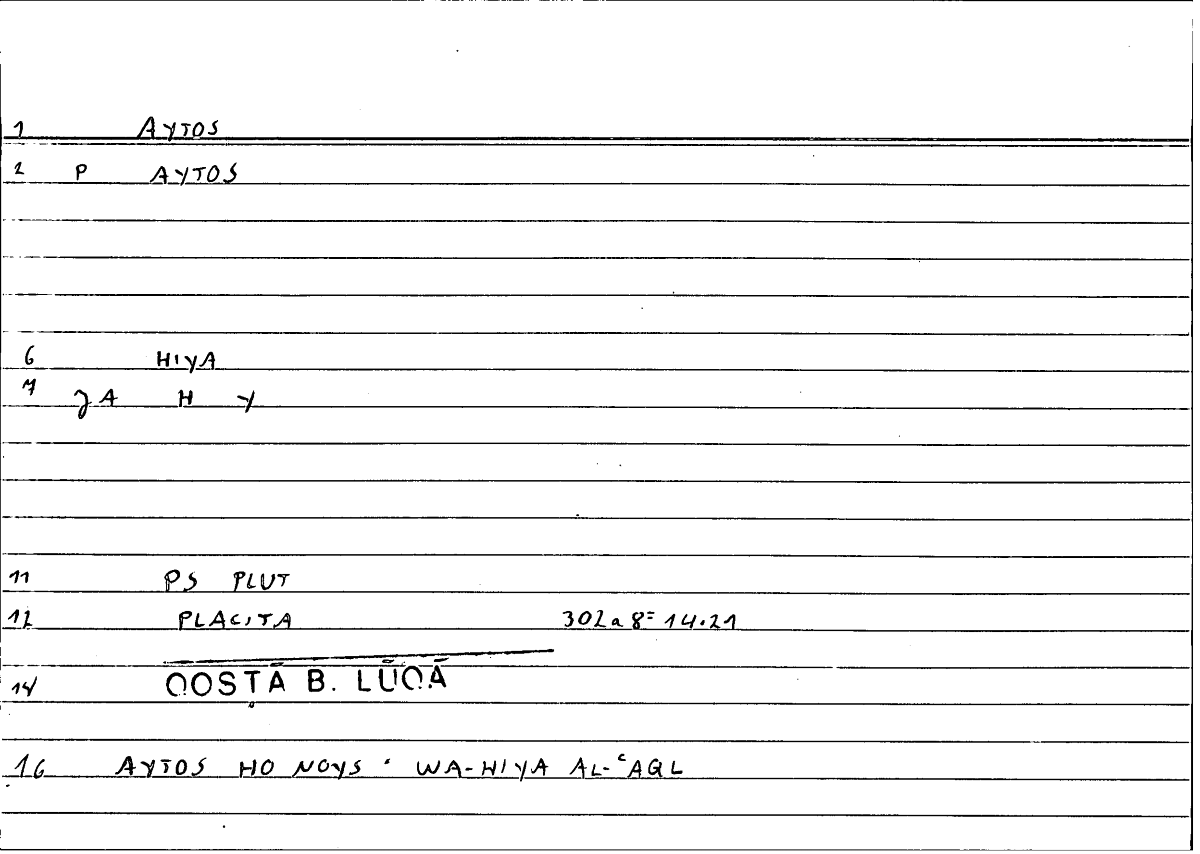 1 AYTOS
2 P AYTOS
6 HIYA
7 A H Y
11 PS PLUT
12 PLACITA 302a8=14.21
14 QOSṬĀ B. LŪQĀ
16 AYTOS HO NOYS : WA-HIYA AL-ʿAQL